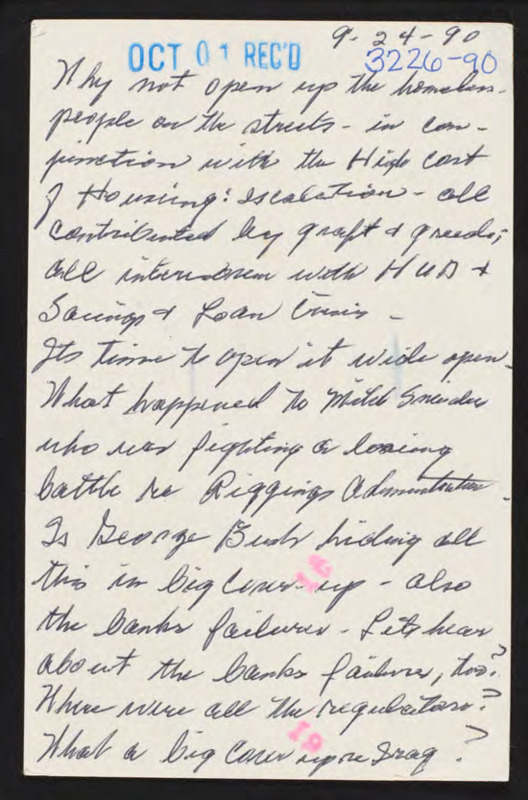 9-24-90
OCT 01 REC'D 3226-90
Why not open up the homeless-
people on the streets - in con-
junction with the High Cost
of Housing: Escalation - all
contributed by graft & greeds;
all interwoven with HUD &
Savings & Loan Crisis -
Its time to open it wide open.
What happened to Mitch Snieder
who was fighting a loosing
battle re Administration.
Is George Bush hiding all
this in big Cover-up - also
the banks failures - Lets hear
about the banks failures, too?
Where were all the regulators?
What a big Cover up re Iraq?